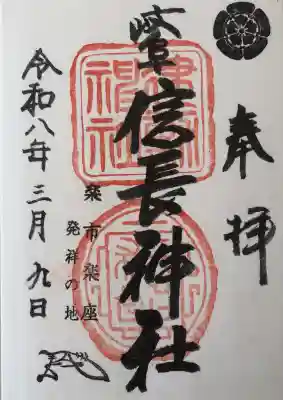 奉拝
岐阜
信長神社
楽市楽座
発祥の地
令和八年三月九日